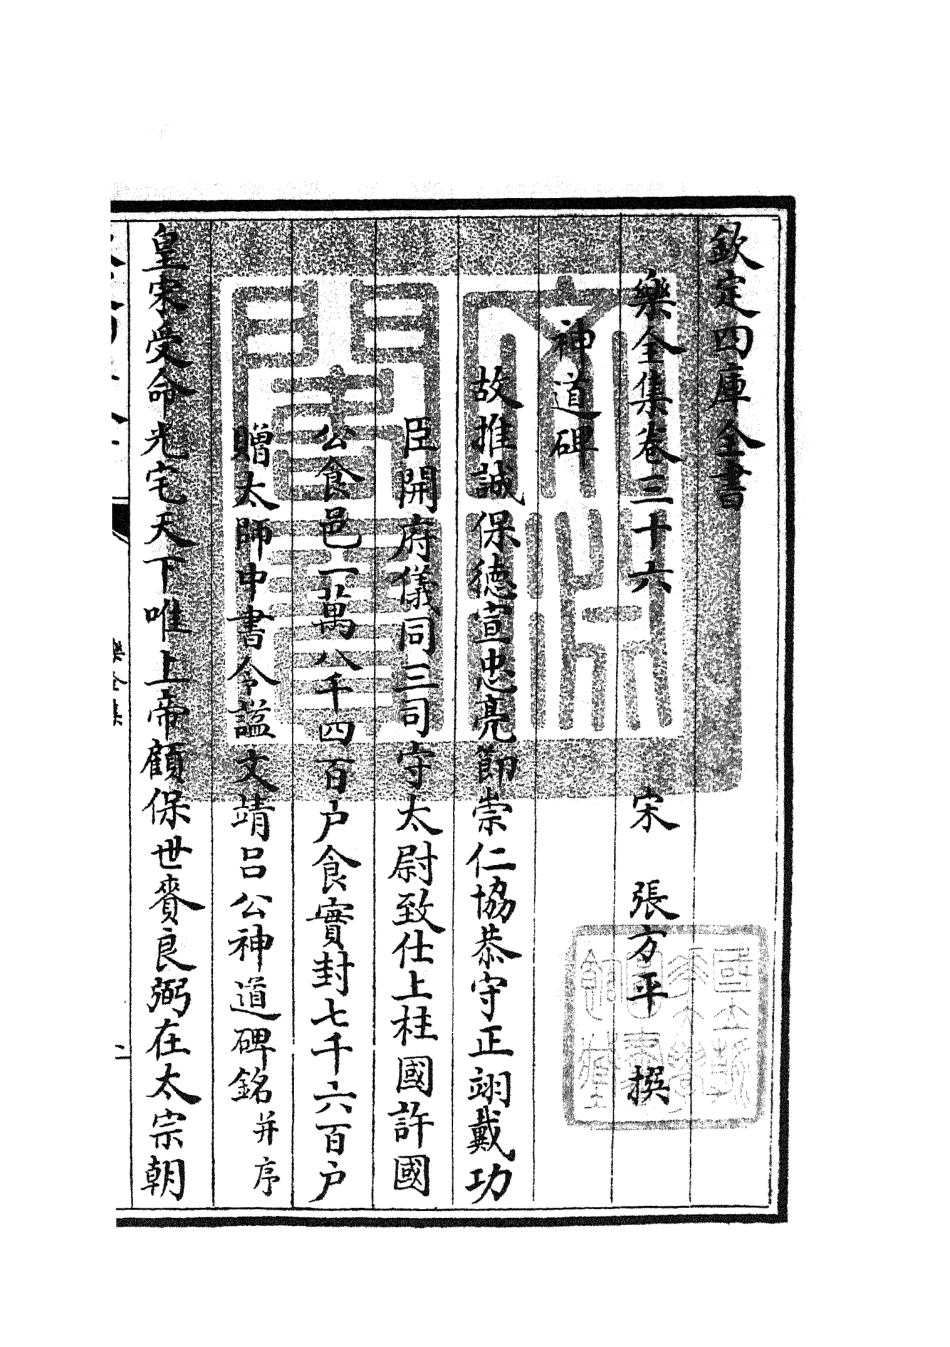 欽定四庫全書
樂全集卷三十六　宋　張方平　撰
神道碑
故推誠保德宣忠亮節崇仁協恭守正翊戴功
臣開府儀同三司守太尉致仕上柱國許國
公食邑一萬八千四百户食實封七千六百户
贈太師中書令諡文靖呂公神道碑銘并序
皇宋受命光宅天下唯上帝顧保世賚良弼在太宗朝
樂全集